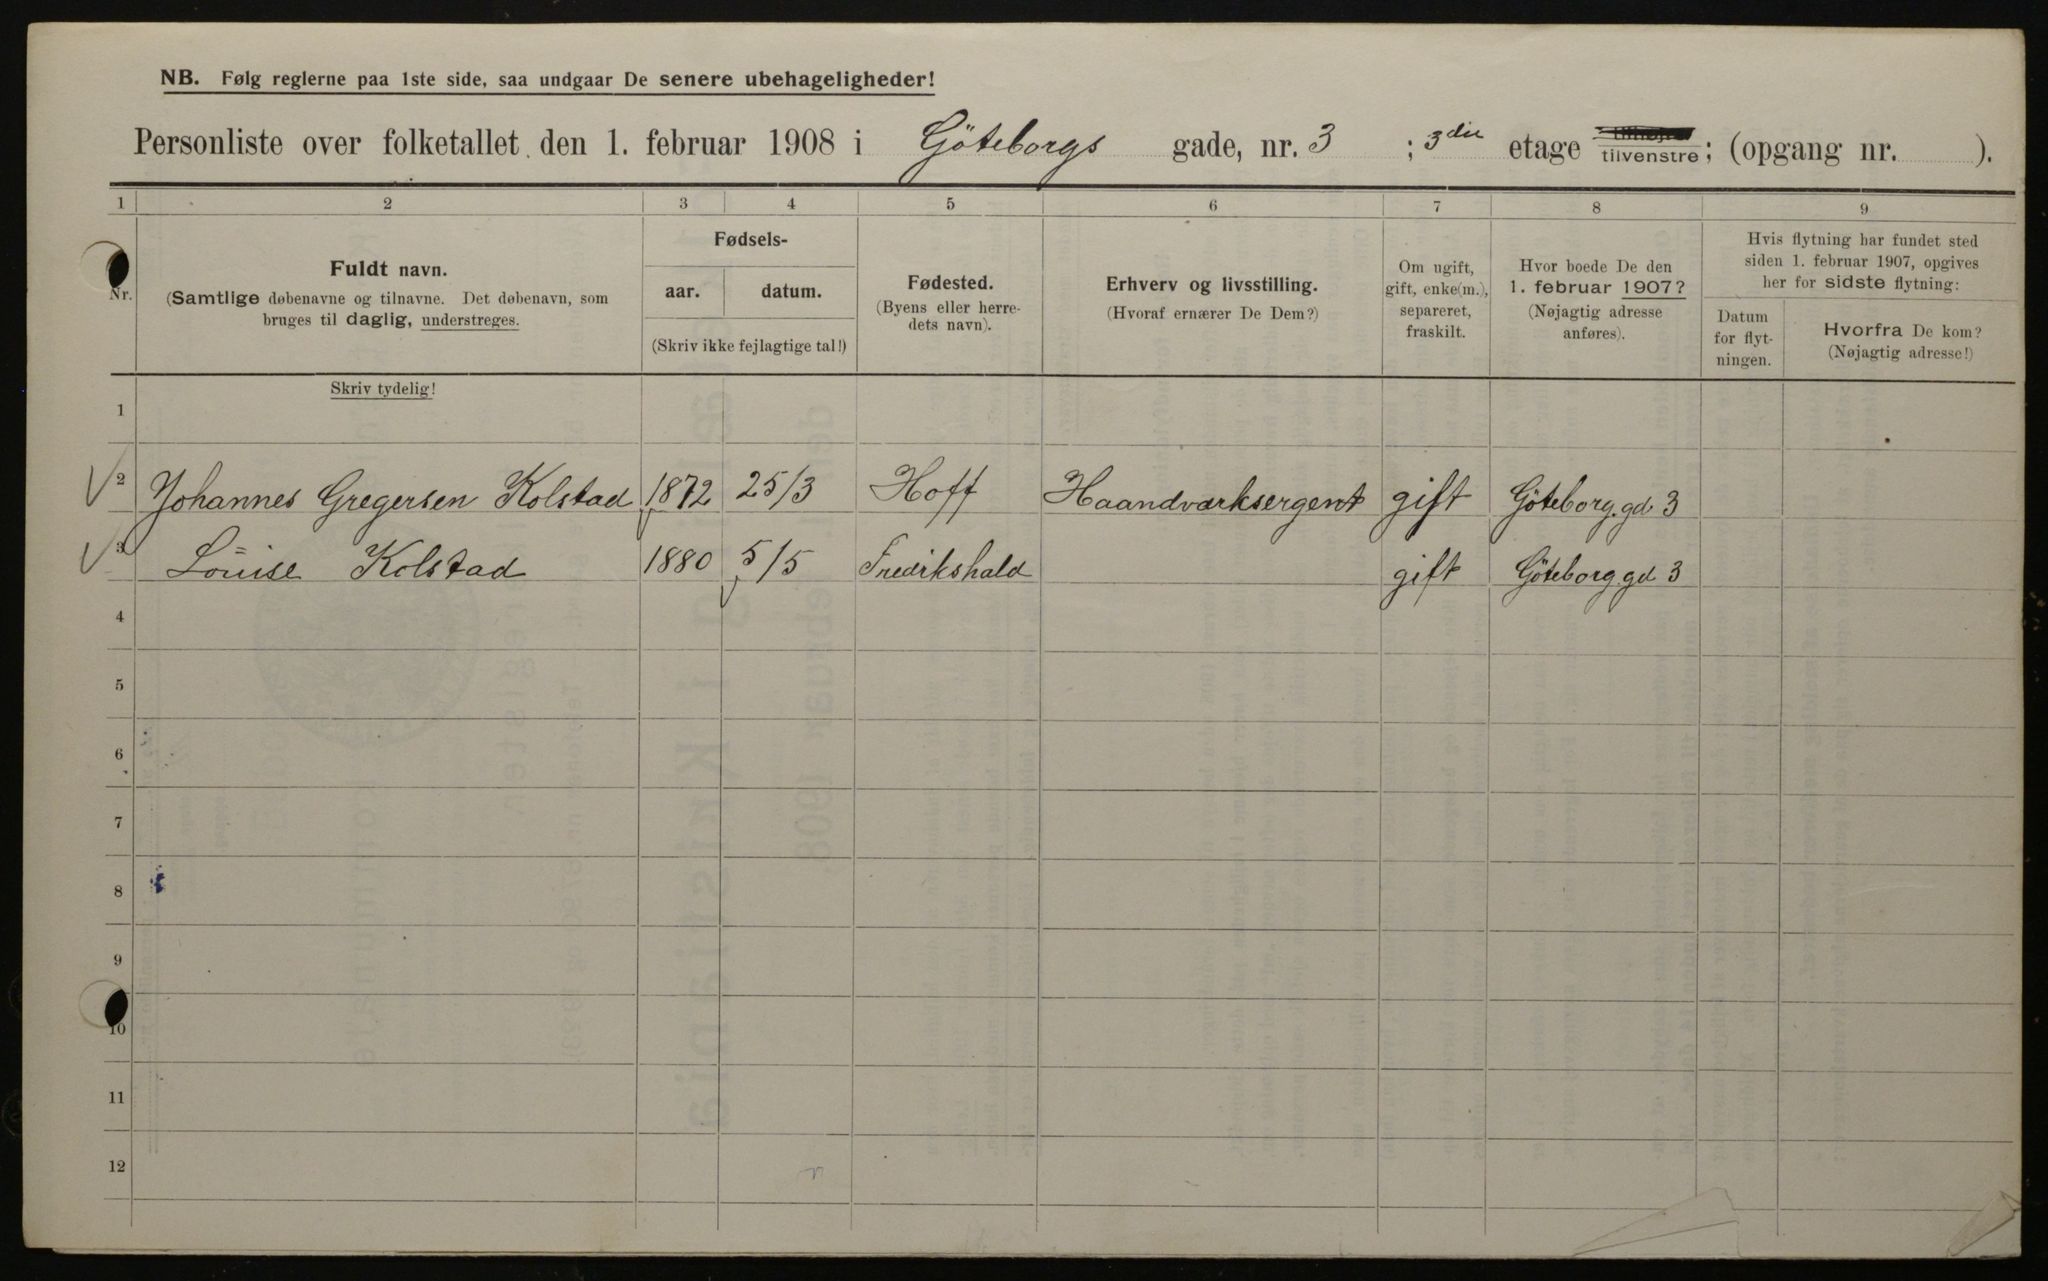 NB. Følg reglerne paa 1ste side, saa undgaar De senere ubehageligheder!
Personliste over folketallet den 1. februar 1908 i Göteborgs gade, nr. 3 ; 3die etage tilhøjre tilvenstre; (opgang nr. ).
1 2 3 4 5 6 7 8 9
Nr.
Fuldt navn.
(Samtlige døbenavne og tilnavne. Det døbenavn, som
bruges til daglig, understreges.
Skriv tydelig!
Fødsels-
aar. datum.
(Skriv ikke fejlagtige tal!)
Fødested.
(Byens eller herre-
dets navn).
Erhverv og livsstilling.
(Hvoraf ernærer De Dem?)
Om ugift,
gift, enke(m.),
separeret,
fraskilt.
Hvor boede De den
1. februar 1907?
(Nøjagtig adresse
anføres).
Hvis flytning har fundet sted
siden 1. februar 1907, opgives
her for sidste flytning:
Datum
for flyt-
ningen.
Hvorfra De kom?
(Nøjagtig adresse!)
1
2 Johannes Gregersen Kolstad 1872 25/3 Hoff Haandværksergent gift Göteborg.gd 3
3 Louise Kolstad 1880 5/5 Fredrikshald gift Göteborg.gd 3
4
5
6
7
8
9
10
11
12